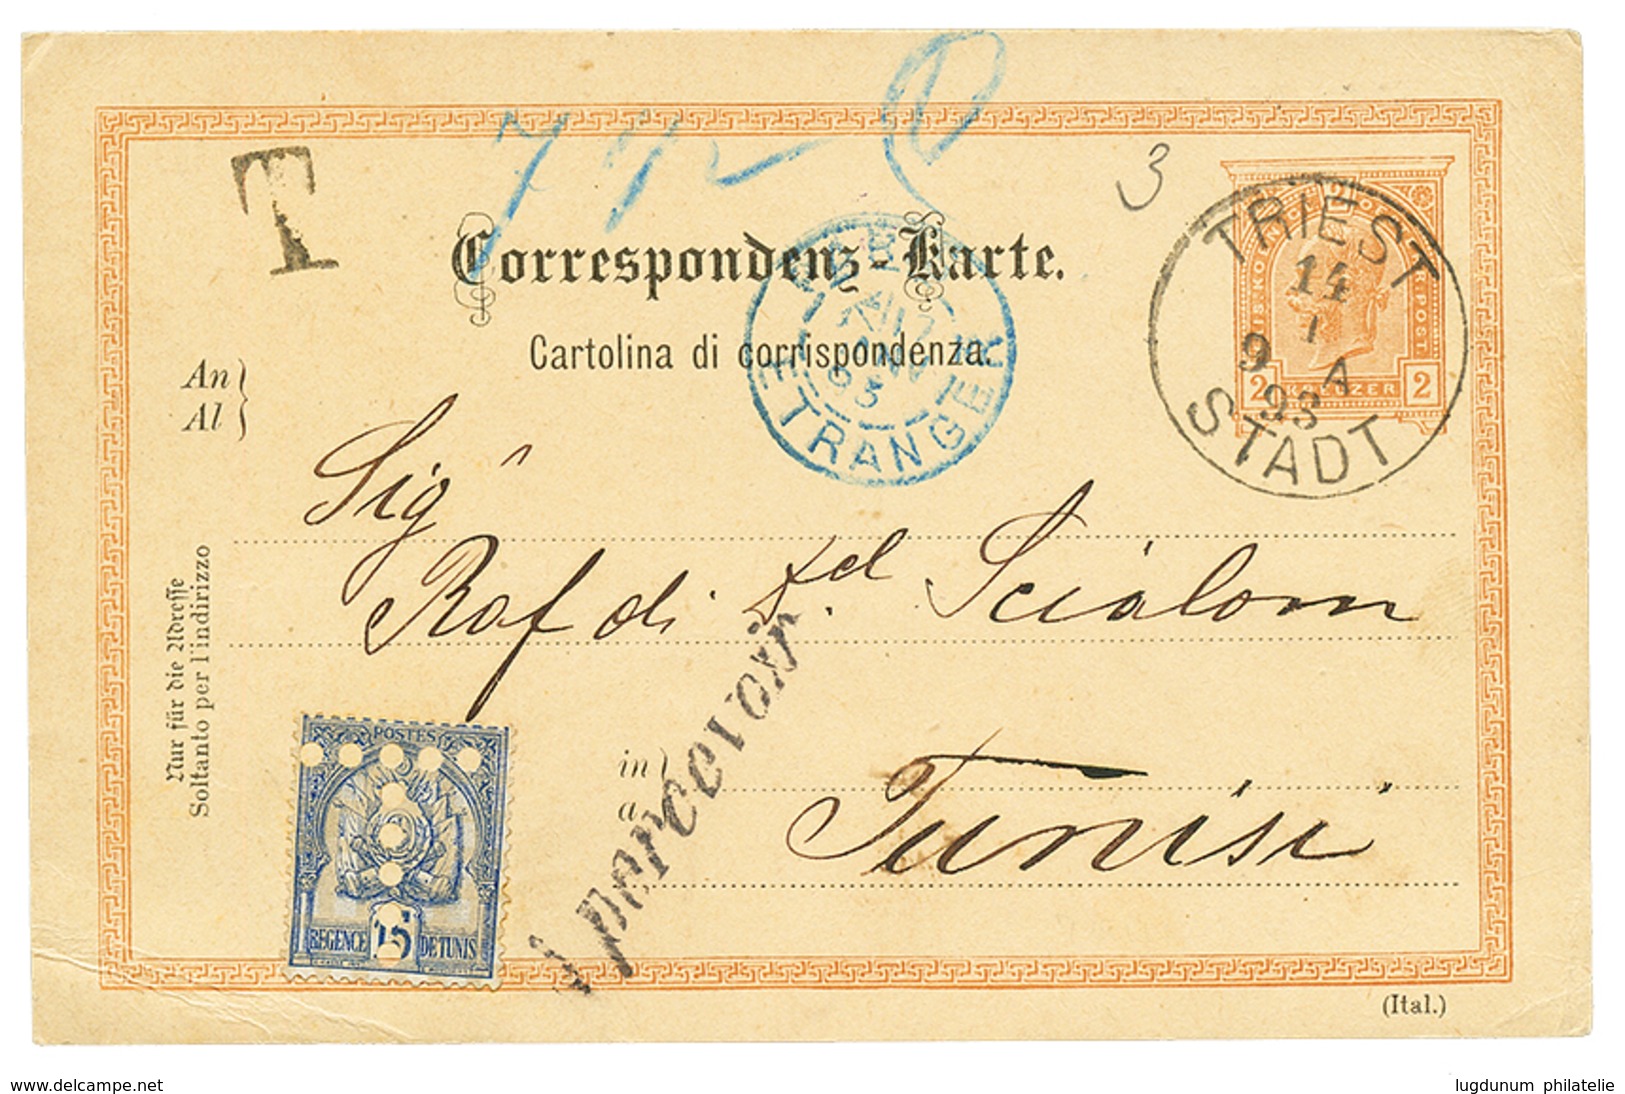 7 1/2
T
3
Correspondenz-Karte.
Cartolina di corrispondenza.
TRIEST
14
1
9 A
93
STADT
2 KREUZER 2
93
ETRANGER
An
Al
Sigr
Raf di Scialom
in
a
Tunisi
Nur für die Adresse
Soltanto per l'indirizzo
A percevoir
POSTES
REGENCE 15 DE TUNIS
(Ital.)
www.delcampe.net
lugdunum philatelie